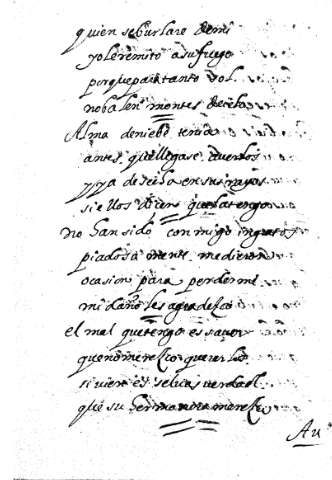 quien seburlare demi
yo le remito a su fuego
porque para tanto sol
no balen montes de yelo
Alma de niebe tenia
antes que llegase a verlos
y ya desecha en sus rayos
si ellos dicen que la tengo
no han sido conmigo ingratos
piadosamente me dieron
ocasion para perderme
mi daño les agradesco
el mal que tengo es fauor
que no meresco
si uien es
que su hermosura meresco
Au